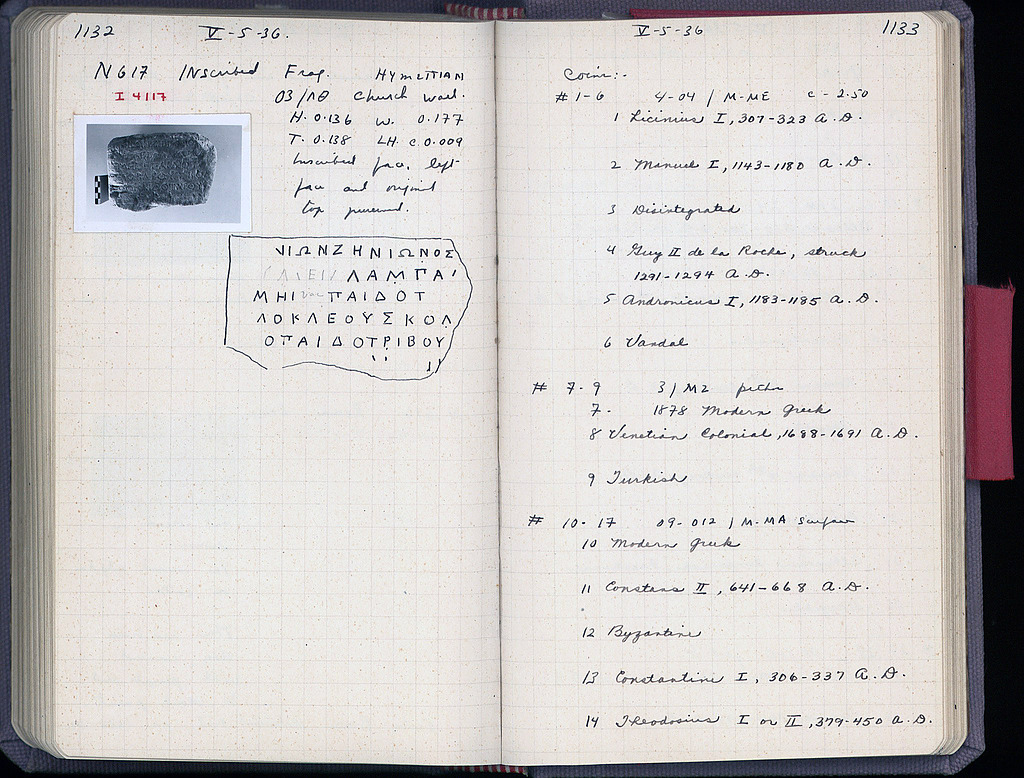 1132 V-5-36.
N 617 Inscribed Frag. Hymettian
I 4117
03/ΛΘ Church wall.
H. 0.136 W. 0.177
T. 0.138 LH. c. 0.009
Inscribed face, left
face and original
top preserved.
ΝΙΩΝΖΗΝΙΩΝΟΣ
ΛΑΜΠΑ
ΜΗΙ vac ΠΑΙΔΟΤ
ΛΟΚΛΕΟΥΣΚΟΛ
ΟΠΑΙΔΟΤΡΙΒΟΥ
V-5-36 1133
Coins:-
# 1-6 4-04 / M-ME c-2.50
1 Licinius I, 307-323 A.D.
2 Manuel I, 1143-1180 A.D.
3 Disintegrated
4 Guy II de la Roche, struck
1291-1294 A.D.
5 Andronicus I, 1183-1185 A.D.
6 Vandal
# 7-9 3/MZ pithos
7. 1878 Modern Greek
8 Venetian Colonial, 1688-1691 A.D.
9 Turkish
# 10-17 09-012 / M-MA Surface
10 Modern Greek
11 Constans II, 641-668 A.D.
12 Byzantine
13 Constantine I, 306-337 A.D.
14 Theodosius I or II, 379-450 A.D.